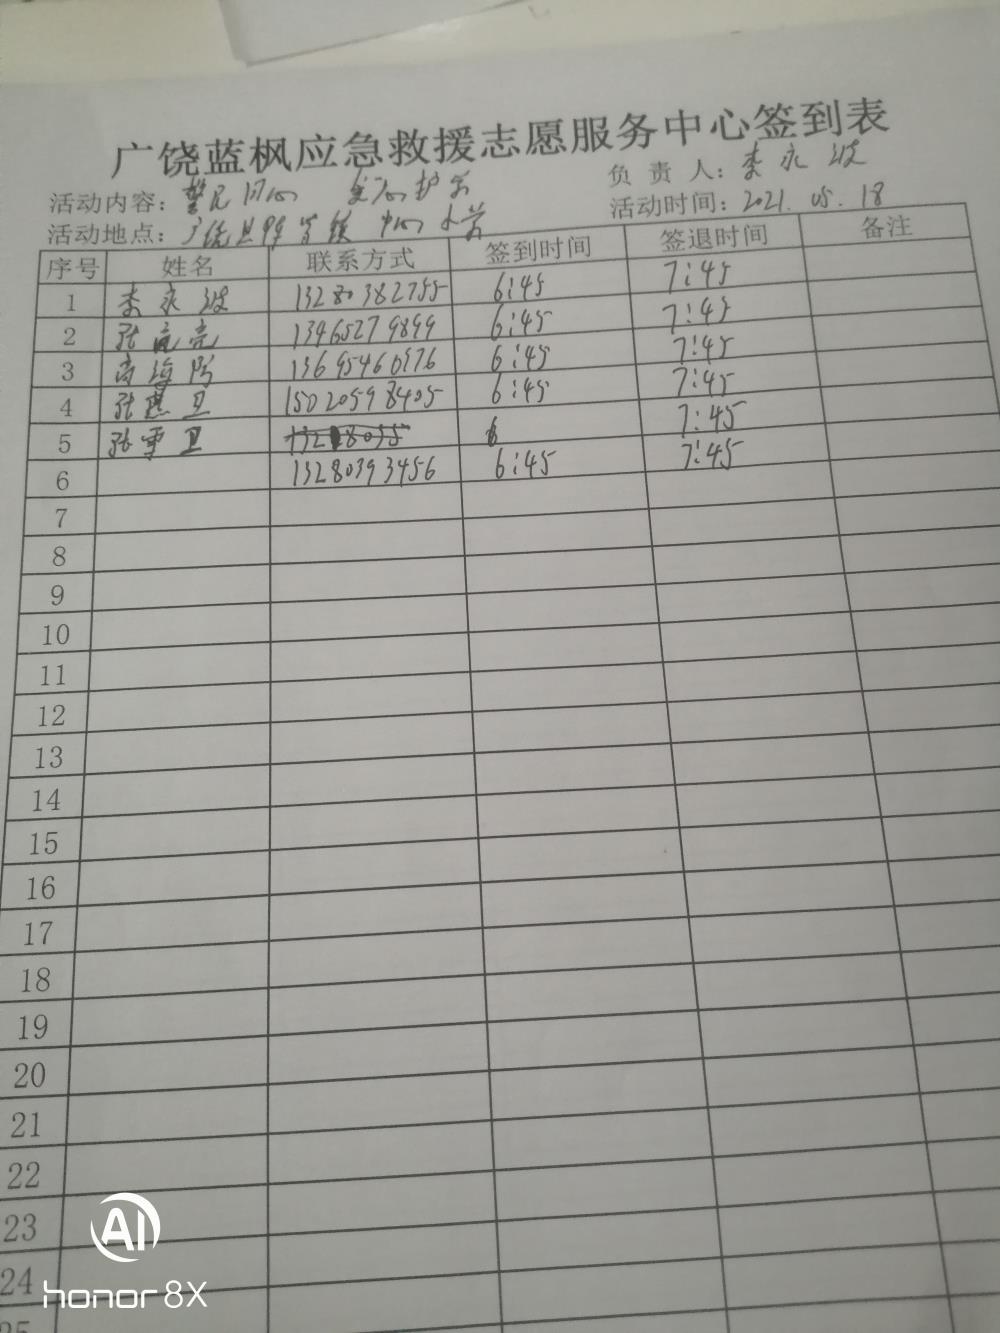 广饶蓝枫应急救援志愿服务中心签到表
活动内容：警民同心 爱心护学 负责人：李永波
活动地点：广饶县 镇 中心小学 活动时间：2021.05.18
序号 姓名 联系方式 签到时间 签退时间 备注
1 李永波 13280382755 6:45 7:45
2 张亮亮 13465279899 6:45 7:45
3 高海防 13695460376 6:45 7:45
4 张 卫 15020598405 6:45 7:45
5 张军卫 6 7:45
6 13280393456 6:45 7:45
7
8
9
10
11
12
13
14
15
16
17
18
19
20
21
22
23
24
25
AI
honor 8X